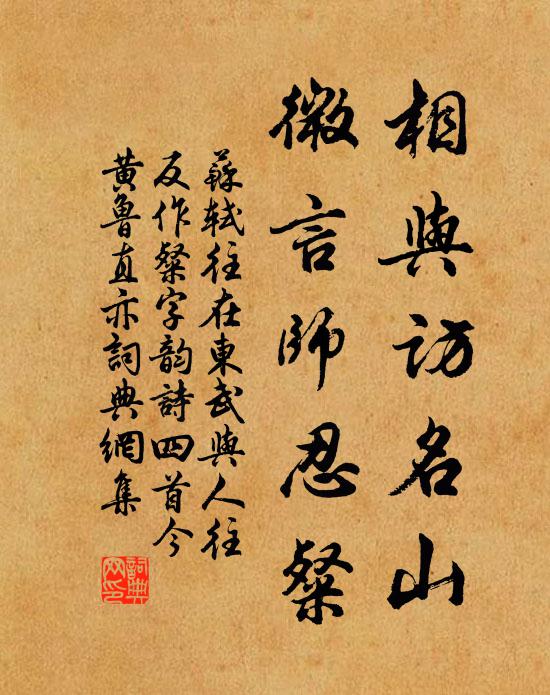 相與訪名山
微言師忍粲
蘇軾往在東武與人往
反作粲字韵詩四首今
黃魯直亦詞典網集
詞典网印